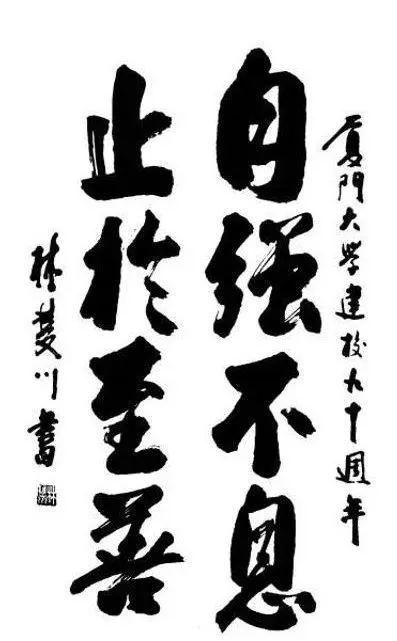 厦門大學建校九十週年
自强不息
止於至善
林 川書